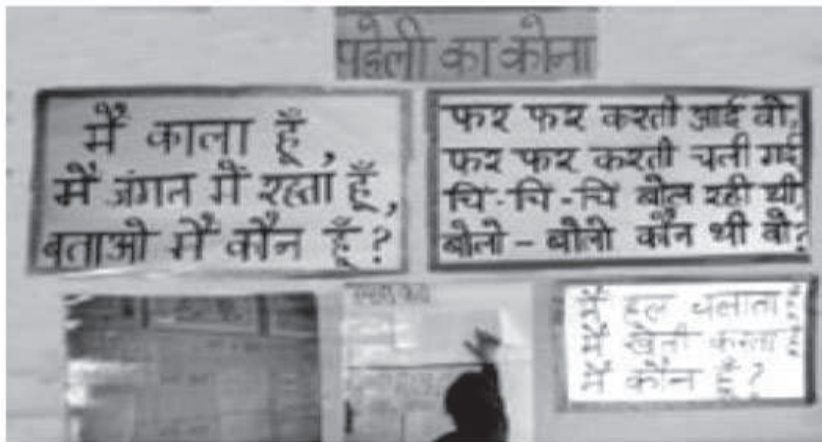 पहेली का कोना
मैं काला हूँ,
मैं जंगल में रहता हूँ,
बताओ मैं कौन हूँ?
फर फर करती आई वो,
फर फर करती चली गई
चि-चि-चि बोल रही थी
बोलो - बोलो कौन थी वो?
मैं हल चलाता
मैं खेती करता
मैं कौन हूँ?